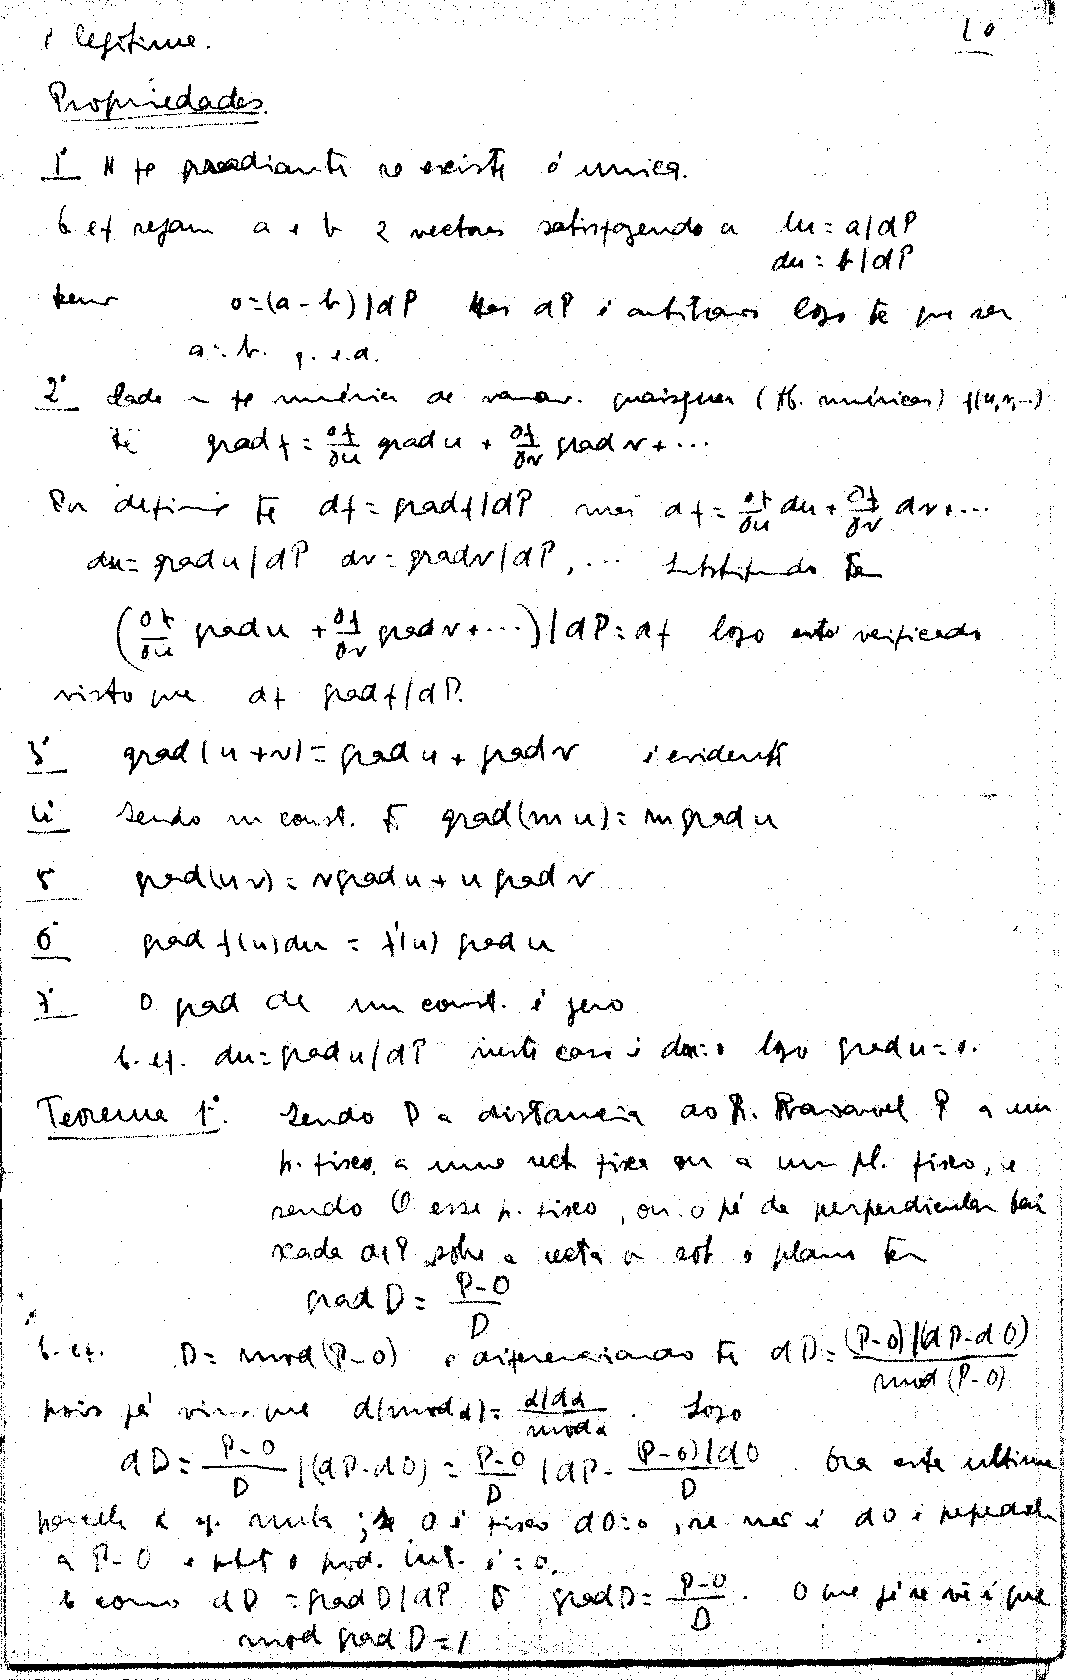 é legitime. 10
Propriedades
1º A fç gradiante se existe é unica.
E ef sejam a e b 2 vectores satisfazendo a du = a|dP
du = b|dP
temos 0=(a-b)|dP Mas dP é arbitrario logo tē que ser
a=b. q.e.d.
2º Dada a fç numérica de variav. quaisquer (ff. numéricas) f(u,v,...)
tē grad f = ∂f/∂u grad u + ∂f/∂v grad v + ...
Por definição tē df = grad f|dP mas df = ∂f/∂u du + ∂f/∂v dv+...
du = grad u|dP dv = grad v|dP, ... Substituindo tē
(∂f/∂u grad u + ∂f/∂v grad v + ...)|dP = df logo está verificado
visto que df grad f|dP.
3º grad(u+v) = grad u + grad v é evidente
4º Sendo m const. tē grad(mu) = m grad u
5º grad(uv) = v grad u + u grad v
6º grad f(u)du = f'(u) grad u
7º O grad de um const. é zero
E. ef. du = grad u|dP neste caso é du=0 logo grad u = 0.
Teorema 1º. Sendo D a distancia do P. variavel P a um
p. fixo, a uma rect fixa ou a um pl. fixo, e
sendo O esse p. fixo, ou o pé da perpendicular bai
xada de P sobre a recta ou sob o plano tē
grad D = P-O/D
E. ef. D = mod(P-O) e diferenciando tē dD = (P-O)|(dP-dO)/mod(P-O)
pois já vimos que d(mod a) = a|da/mod a. Logo
dD = P-O/D |(dP-dO) = P-O/D |dP - (P-O)|dO/D. Ora esta ultima
parcela é nula; se O é fixo dO=0, se não é dO é perpendic
a P-O e o prod. int. é = 0.
E como dD = grad D|dP tē grad D = P-O/D. O que já se vê é que
mod grad D = 1